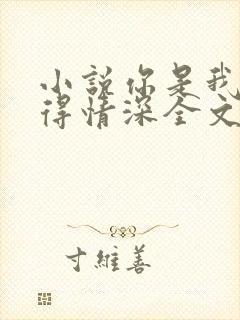 小说你是我
得情深全文
寸维善